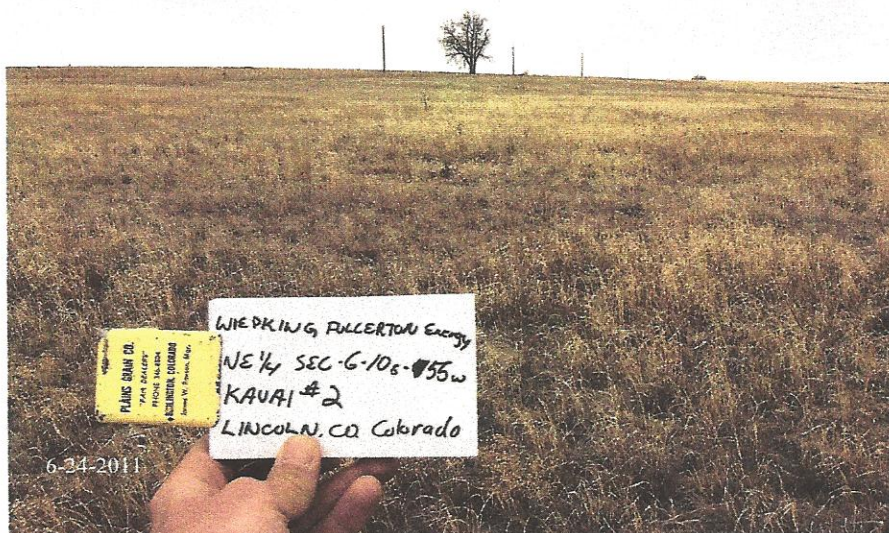 WIEPKING, FULLERTON Energy
NE 1/4 SEC-6-10s-55w
KAUAI #2
LINCOLN, CO Colorado
PLAINS GRAIN CO.
"FARM DEALERS"
PHONE 346-8504
BURLINGTON, COLORADO
Mgr.
6-24-2011